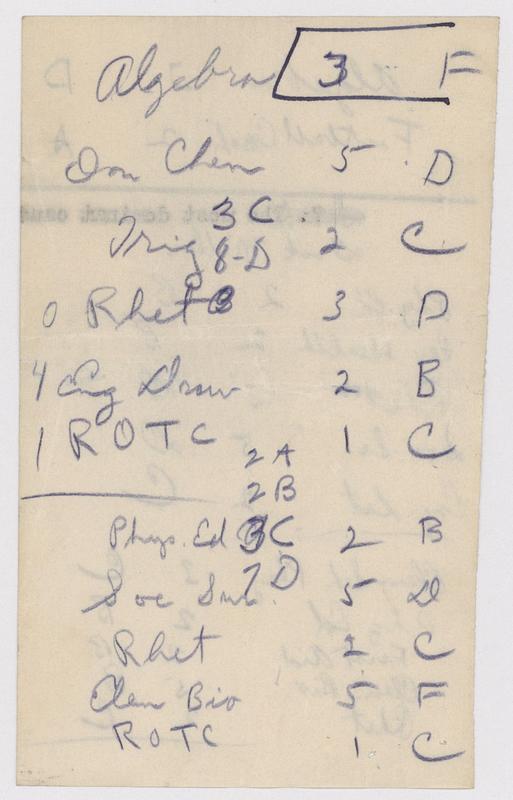 Algebra 3 F
Chem 5 D
3 C
Trig 2 C
8-D
0 Rhet 3 D
4 Eng Draw 2 B
1 ROTC 1 C
2 A
2 B
Phys. Ed 2 B
3 C
7 D
Soc 5 D
Rhet 2 C
Bio 5 F
ROTC 1 C